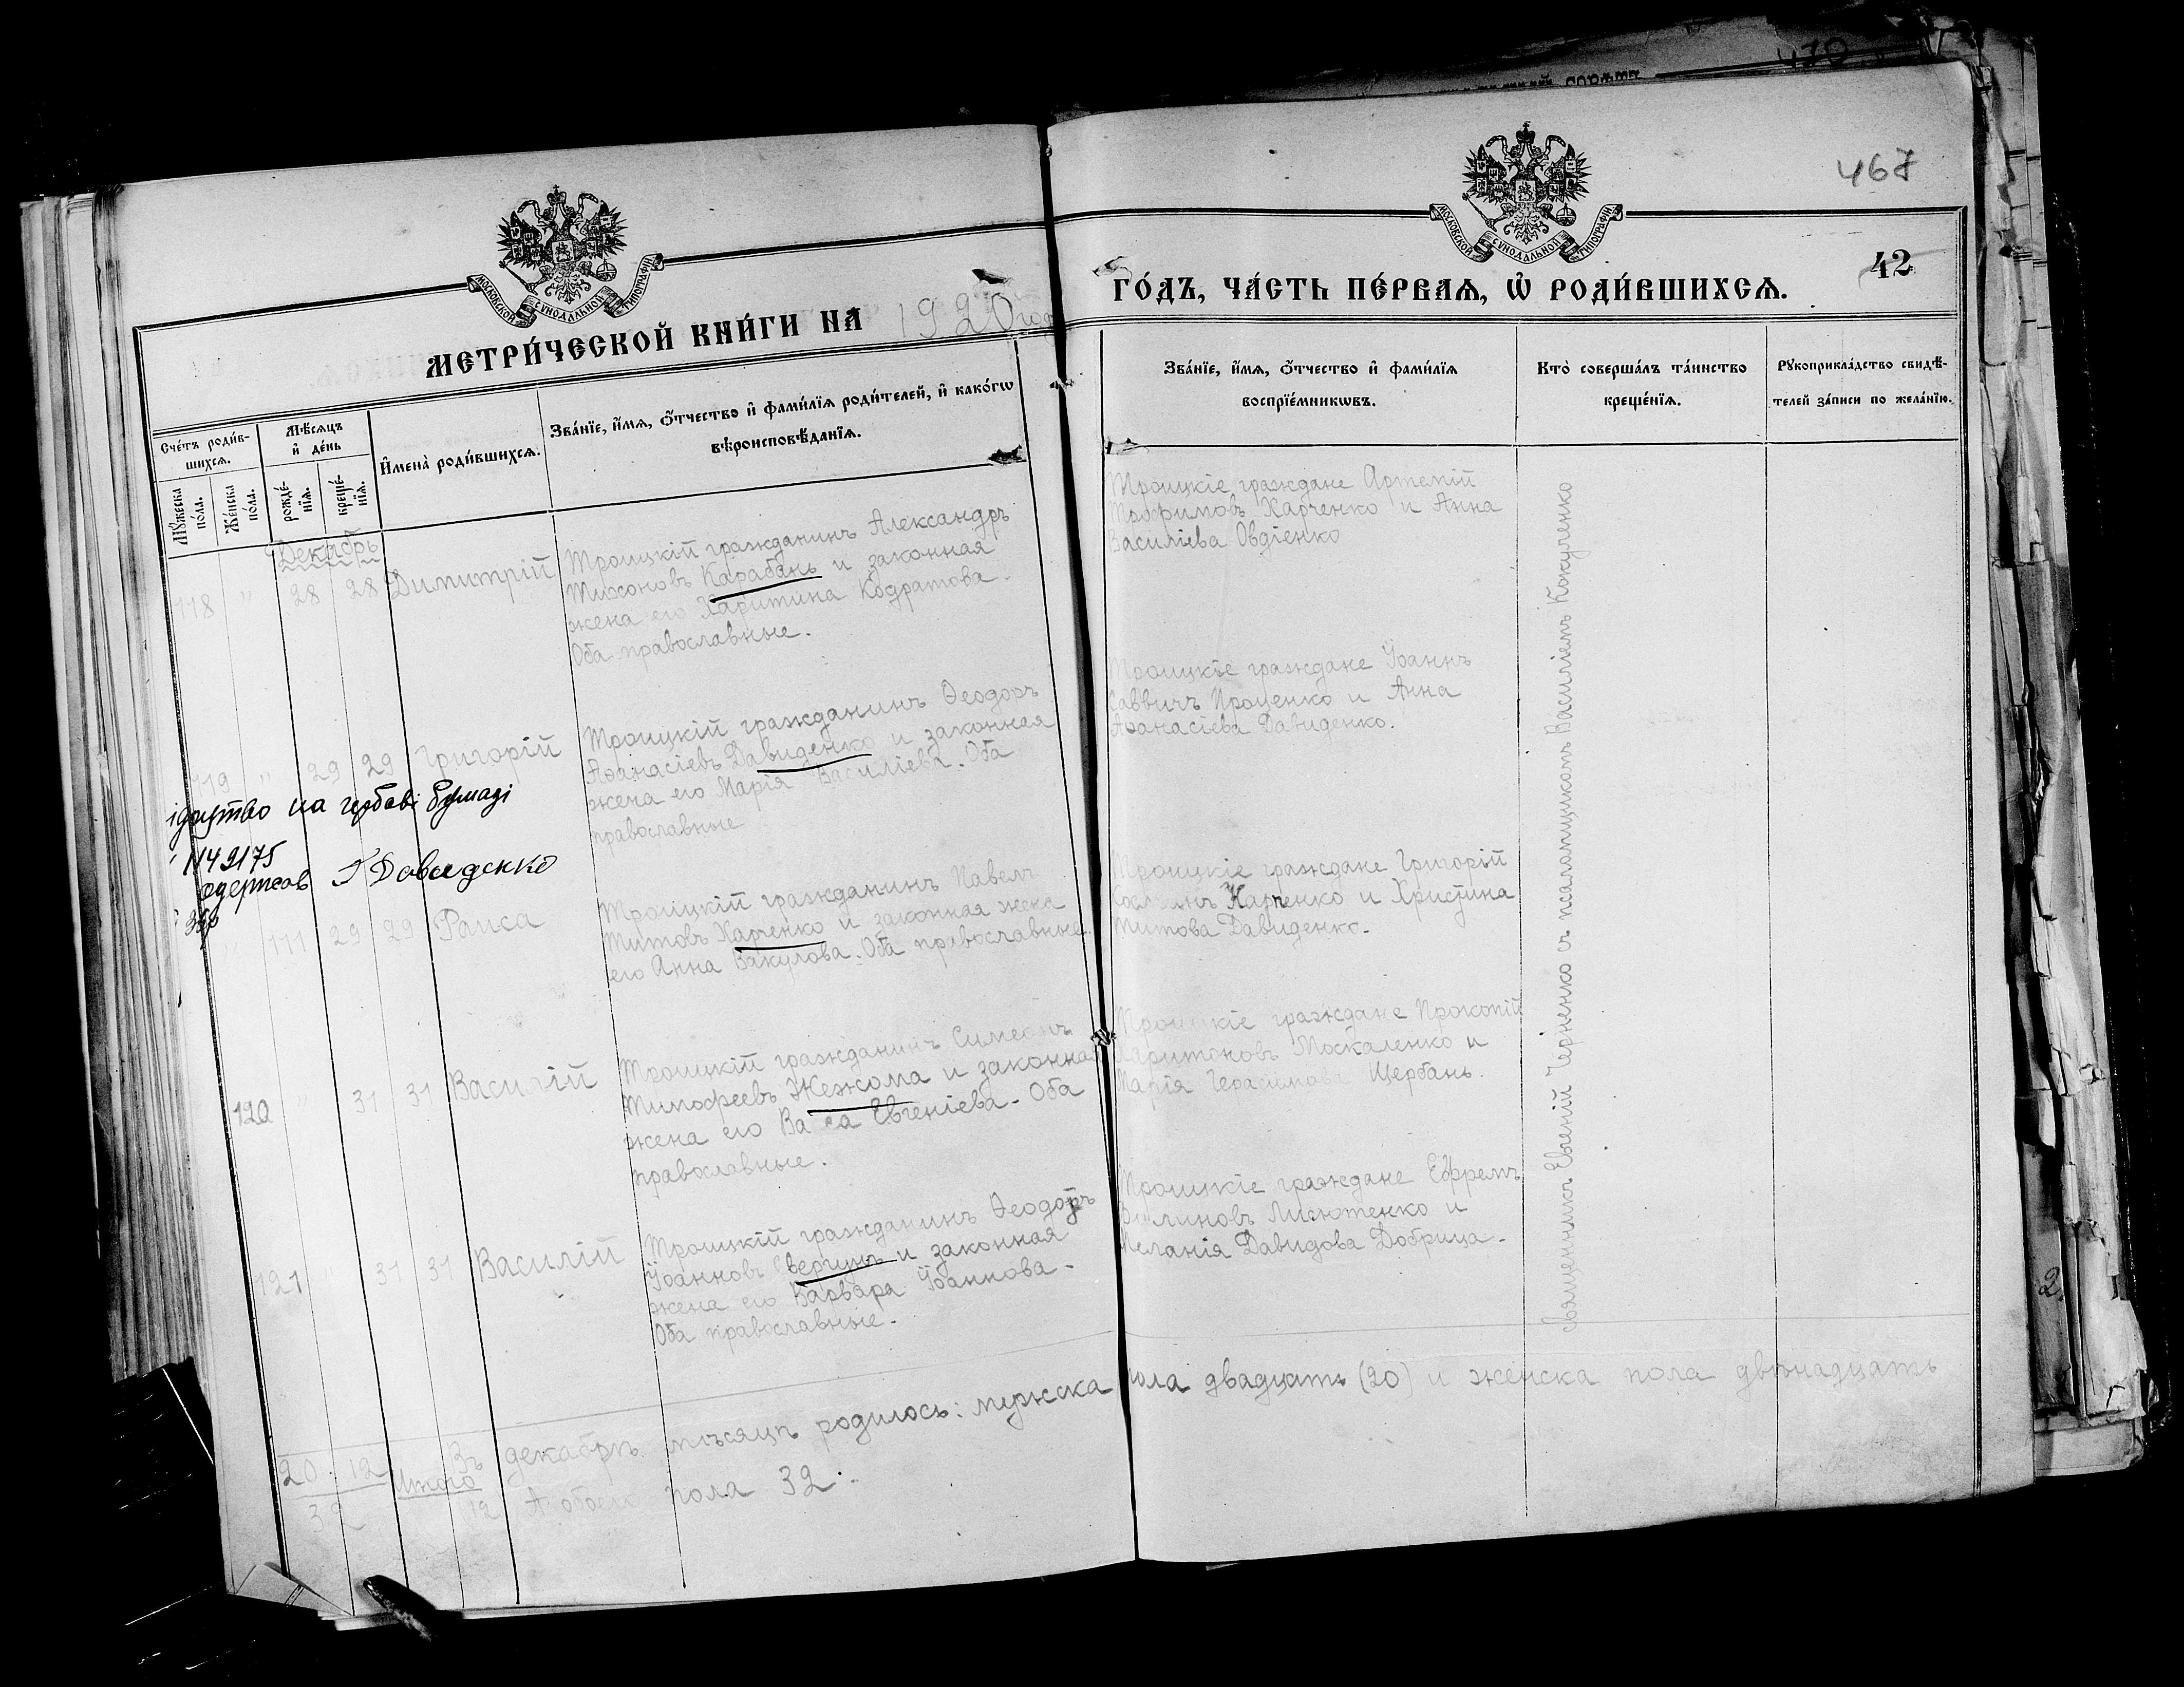 470
467
МОСКОВСКОЙ СѴНОДАЛЬНОЙ ТИПОГРАФІИ
МОСКОВСКОЙ СѴНОДАЛЬНОЙ ТИПОГРАФІИ
42
МЕТРИ́ЧЕСКОЙ КНИ́ГИ НА 1920 год
ГО́ДЪ, ЧА́СТЬ ПЕ́РВАѦ, Ѡ҆ РОДИ́ВШИХСѦ.
Сче́тъ роди́в-
шихсѧ.
Мꙋ́жеска по́ла.
Же́нска по́ла.
Мѣ́сяцъ и҆ де́нь
рожде́-
нїѧ.
креще́-
нїѧ.
И҆мена̀ роди́вшихсѧ.
Зва́нїе, и҆́мѧ, ѻ҆́тчество и҆ фами́лїѧ роди́телей, и҆ како́гѡ
вѣроисповѣ́данїѧ.
Зва́нїе, и҆́мѧ, ѻ҆́тчество и҆ фами́лїѧ
воспрїе́мникѡвъ.
Кто̀ соверша́лъ та́инство
креще́нїѧ.
Рꙋкоприкла́дство свидѣ́-
телей за́писи по жела́нїю.
Декабрь
118 " 28 28 Димитрій
Троицкій гражданинъ Александръ
Тихоновъ Карабань и законная
жена его Харитина Кодратова.
Оба православные.
Троицкіе граждане Артемій
Трофимовъ Харченко и Анна
Василіева Овдіенко
119 " 29 29 Григорій
Троицкій гражданинъ Ѳеодоръ
Аѳанасіевъ Давиденко и законная
жена его Марія Василіева. Оба
православные
Троицкіе граждане Іоаннъ
Саввичъ Проценко и Анна
Аѳанасіева Давиденко.
на гербові бумазі
1142175
одержав Г Давиденко
111 29 29 Раиса
Троицкій гражданинъ Павелъ
Титовъ Харченко и законная жена
его Анна Вакулова. Оба православные.
Троицкіе граждане Григорій
Харченко и Христина
Титова Давиденко.
120 " 31 31 Василій
Троицкій гражданинъ Симеонъ
Тимофеевъ Жежома и законная
жена его Васса Евгеніева. Оба
православные.
Троицкіе граждане Прокопій
Харитоновъ Москаленко и
Марія Герасимова Щербань.
121 " 31 31 Василій
Троицкій гражданинъ Ѳеодоръ
Іоанновъ и законная
жена его Варвара Іоаннова.
Оба православные.
Троицкіе граждане Ефремъ
и
Меланія Давидова Добрица.
Священникъ Евгеній Черненко съ псаломщикомъ Василіемъ Кокуленко
Въ декабрѣ мѣсяцѣ родилось: мужска пола двадцать (20) и женска пола двѣнадцать
20 12 Итого
32
12 А обоего пола 32.
2